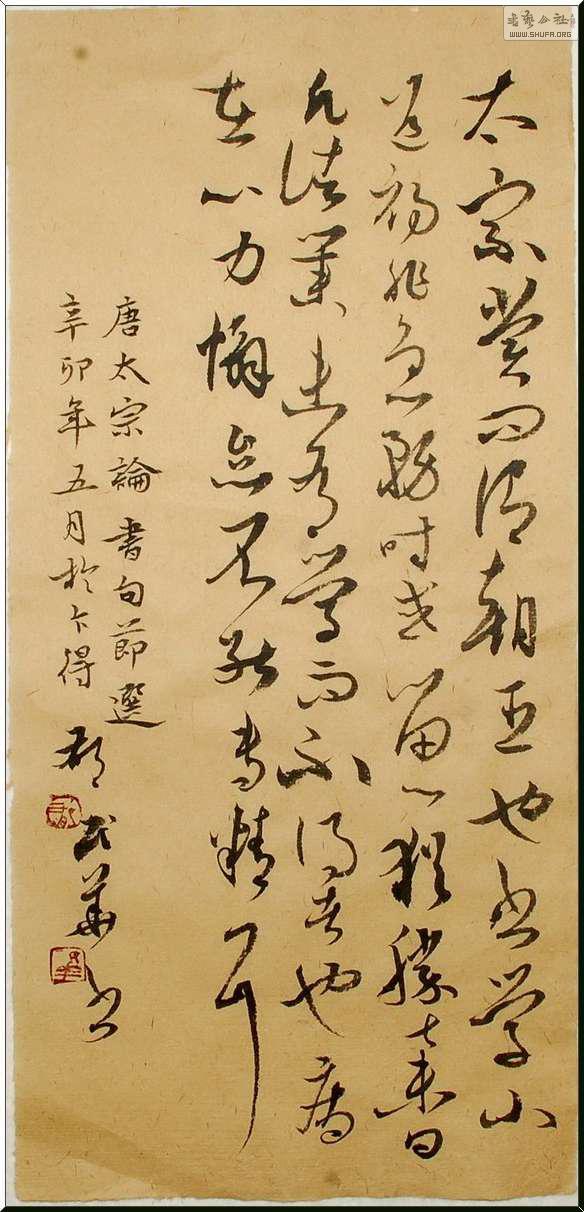 書藝公社
WWW.SHUFA.ORG
太宗嘗朝臣也书學小
道初非急務时或留心猶勝棄日
凡諸業未有學而不得者也病
在心力懈怠不能專精耳
唐太宗論書句節選
辛卯年五月於得華书